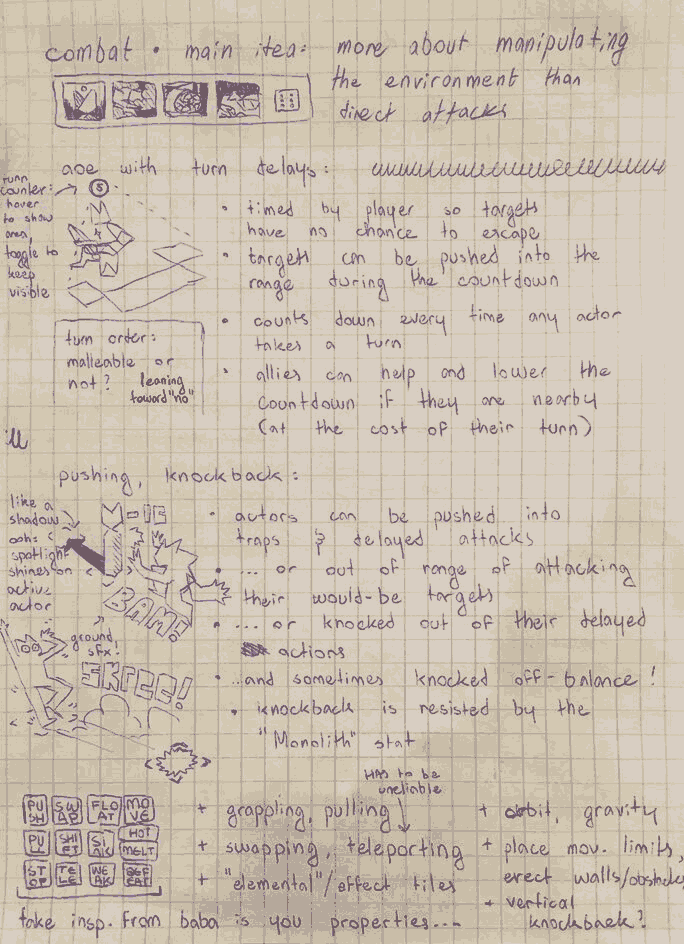 combat • main itea: more about manipulating
the environment than
direct attacks
aoe with turn delays:
turn
counter:
hover
to show
area,
toggle to
keep
visible
5
• timed by player so targets
have no chance to escape
• targets can be pushed into the
range during the countdown
• counts down every time any actor
takes a turn
• allies can help and lower the
countdown if they are nearby
(at the cost of their turn)
turn order:
malleable or
not? leaning
toward "no"
pushing, knockback:
like a
shadow
ooh:
spotlight
shines on
active
actor
BAM!
ground
sfx!
• actors can be pushed into
traps & delayed attacks
• ... or out of range of attacking
their would-be targets
• ... or knocked out of their delayed
actions
• ...and sometimes knocked off-balance!
• knockback is resisted by the
"Monolith" stat
PU SH SW AP FLO AT MO VE
PU LL SHI FT SI NK HOT MELT
ST OP TE LE WE AK DEF EAT
HAS to be
unreliable
+ grappling, pulling
+ swapping, teleporting
+ "elemental"/effect tiles
+ orbit, gravity
+ place mov. limits,
erect walls/obstacles
+ vertical
knockback?
take insp. from baba is you properties...